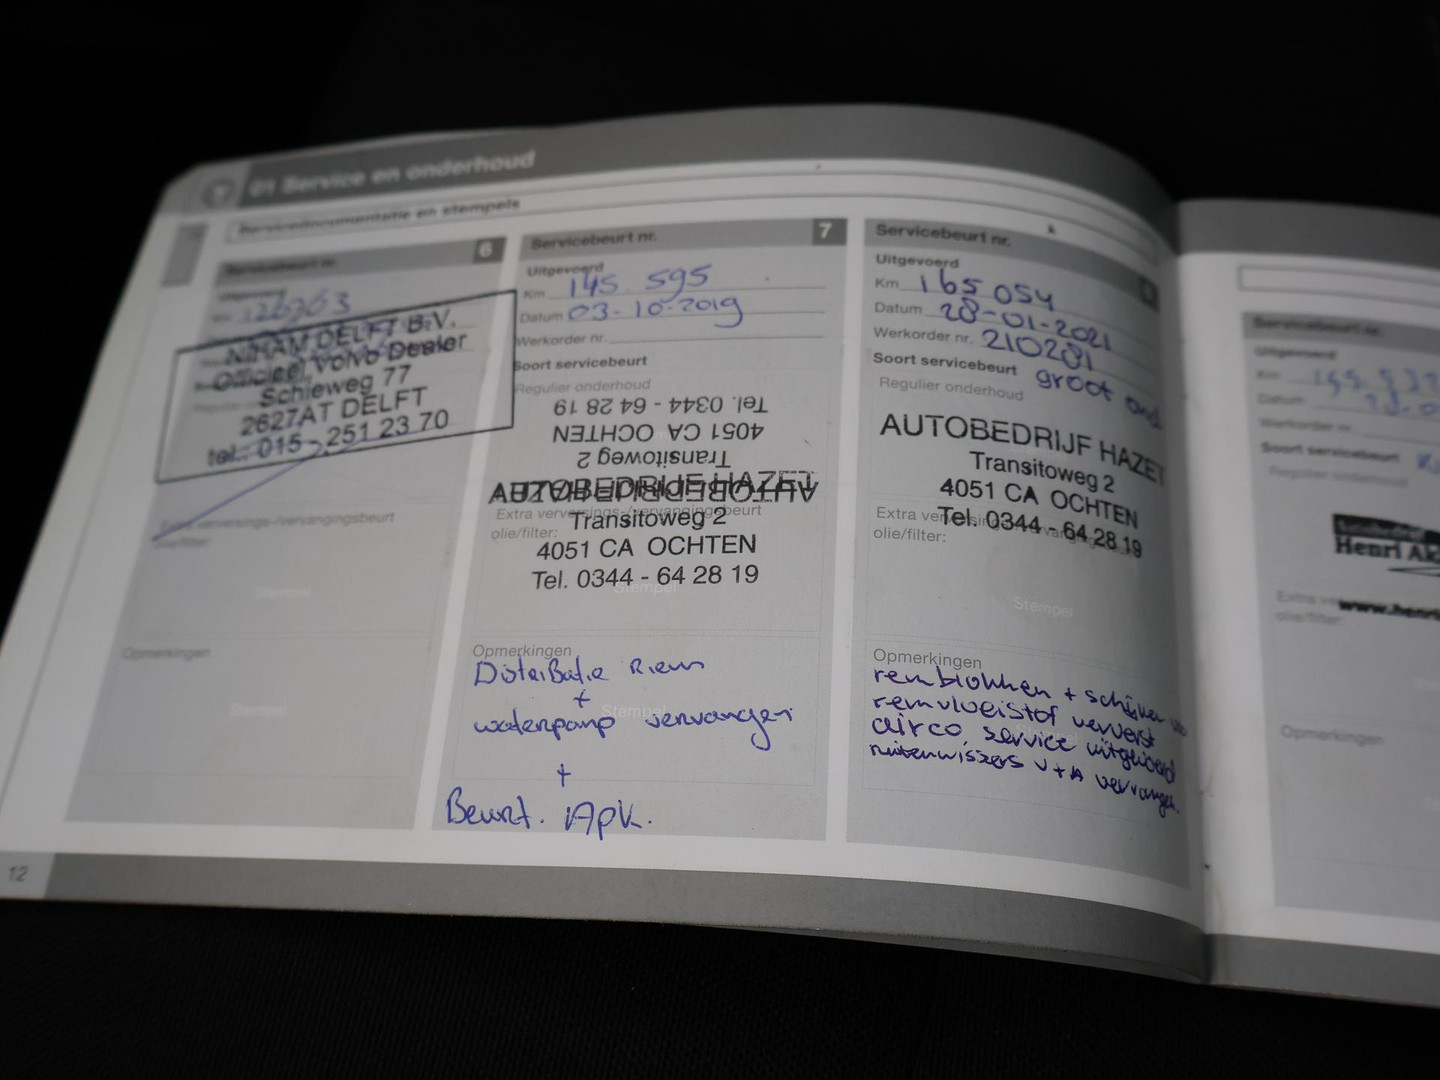 01 Service en onderhoud
Servicedocumentatie en stempels
Servicebeurt nr. 6
Uitgevoerd
126363
NIHAM DELFT B.V.
Officieel Volvo Dealer
Schieweg 77
2627AT DELFT
tel. 015 - 251 23 70
Extra verversings-/vervangingsbeurt
olie/filter:
Stempel
Opmerkingen
Stempel
12
Servicebeurt nr. 7
Uitgevoerd
Km 145 595
Datum 03-10-2019
Werkorder nr.
Soort servicebeurt
Regulier onderhoud
Tel. 0344 - 64 28 19
4051 CA OCHTEN
Transitoweg 2
AUTOBEDRIJF HAZET
AUTOBEDRIJF HAZET
Extra verversings-/vervangingsbeurt
Transitoweg 2
olie/filter:
4051 CA OCHTEN
Tel. 0344 - 64 28 19
Stempel
Opmerkingen
Distributie Riem
+
Stempel
waterpomp vervangen
+
Beurt. Apk.
Servicebeurt nr.
Uitgevoerd
Km 165 054
Datum 28-01-2021
Werkorder nr. 210281
Soort servicebeurt groot
Regulier onderhoud
AUTOBEDRIJF HAZET
Transitoweg 2
4051 CA OCHTEN
Tel. 0344 - 64 28 19
olie/filter:
Stempel
Opmerkingen
remblokken + schijven
remvloeistof ververst
airco service uitgevoerd
ruitenwissers V+A vervangen.
Servicebeurt nr.
Uitgevoerd
Km
Datum
Werkorder nr.
Soort servicebeurt
Regulier onderhoud
Henri Ak
www.henri
olie/filter:
Opmerkingen